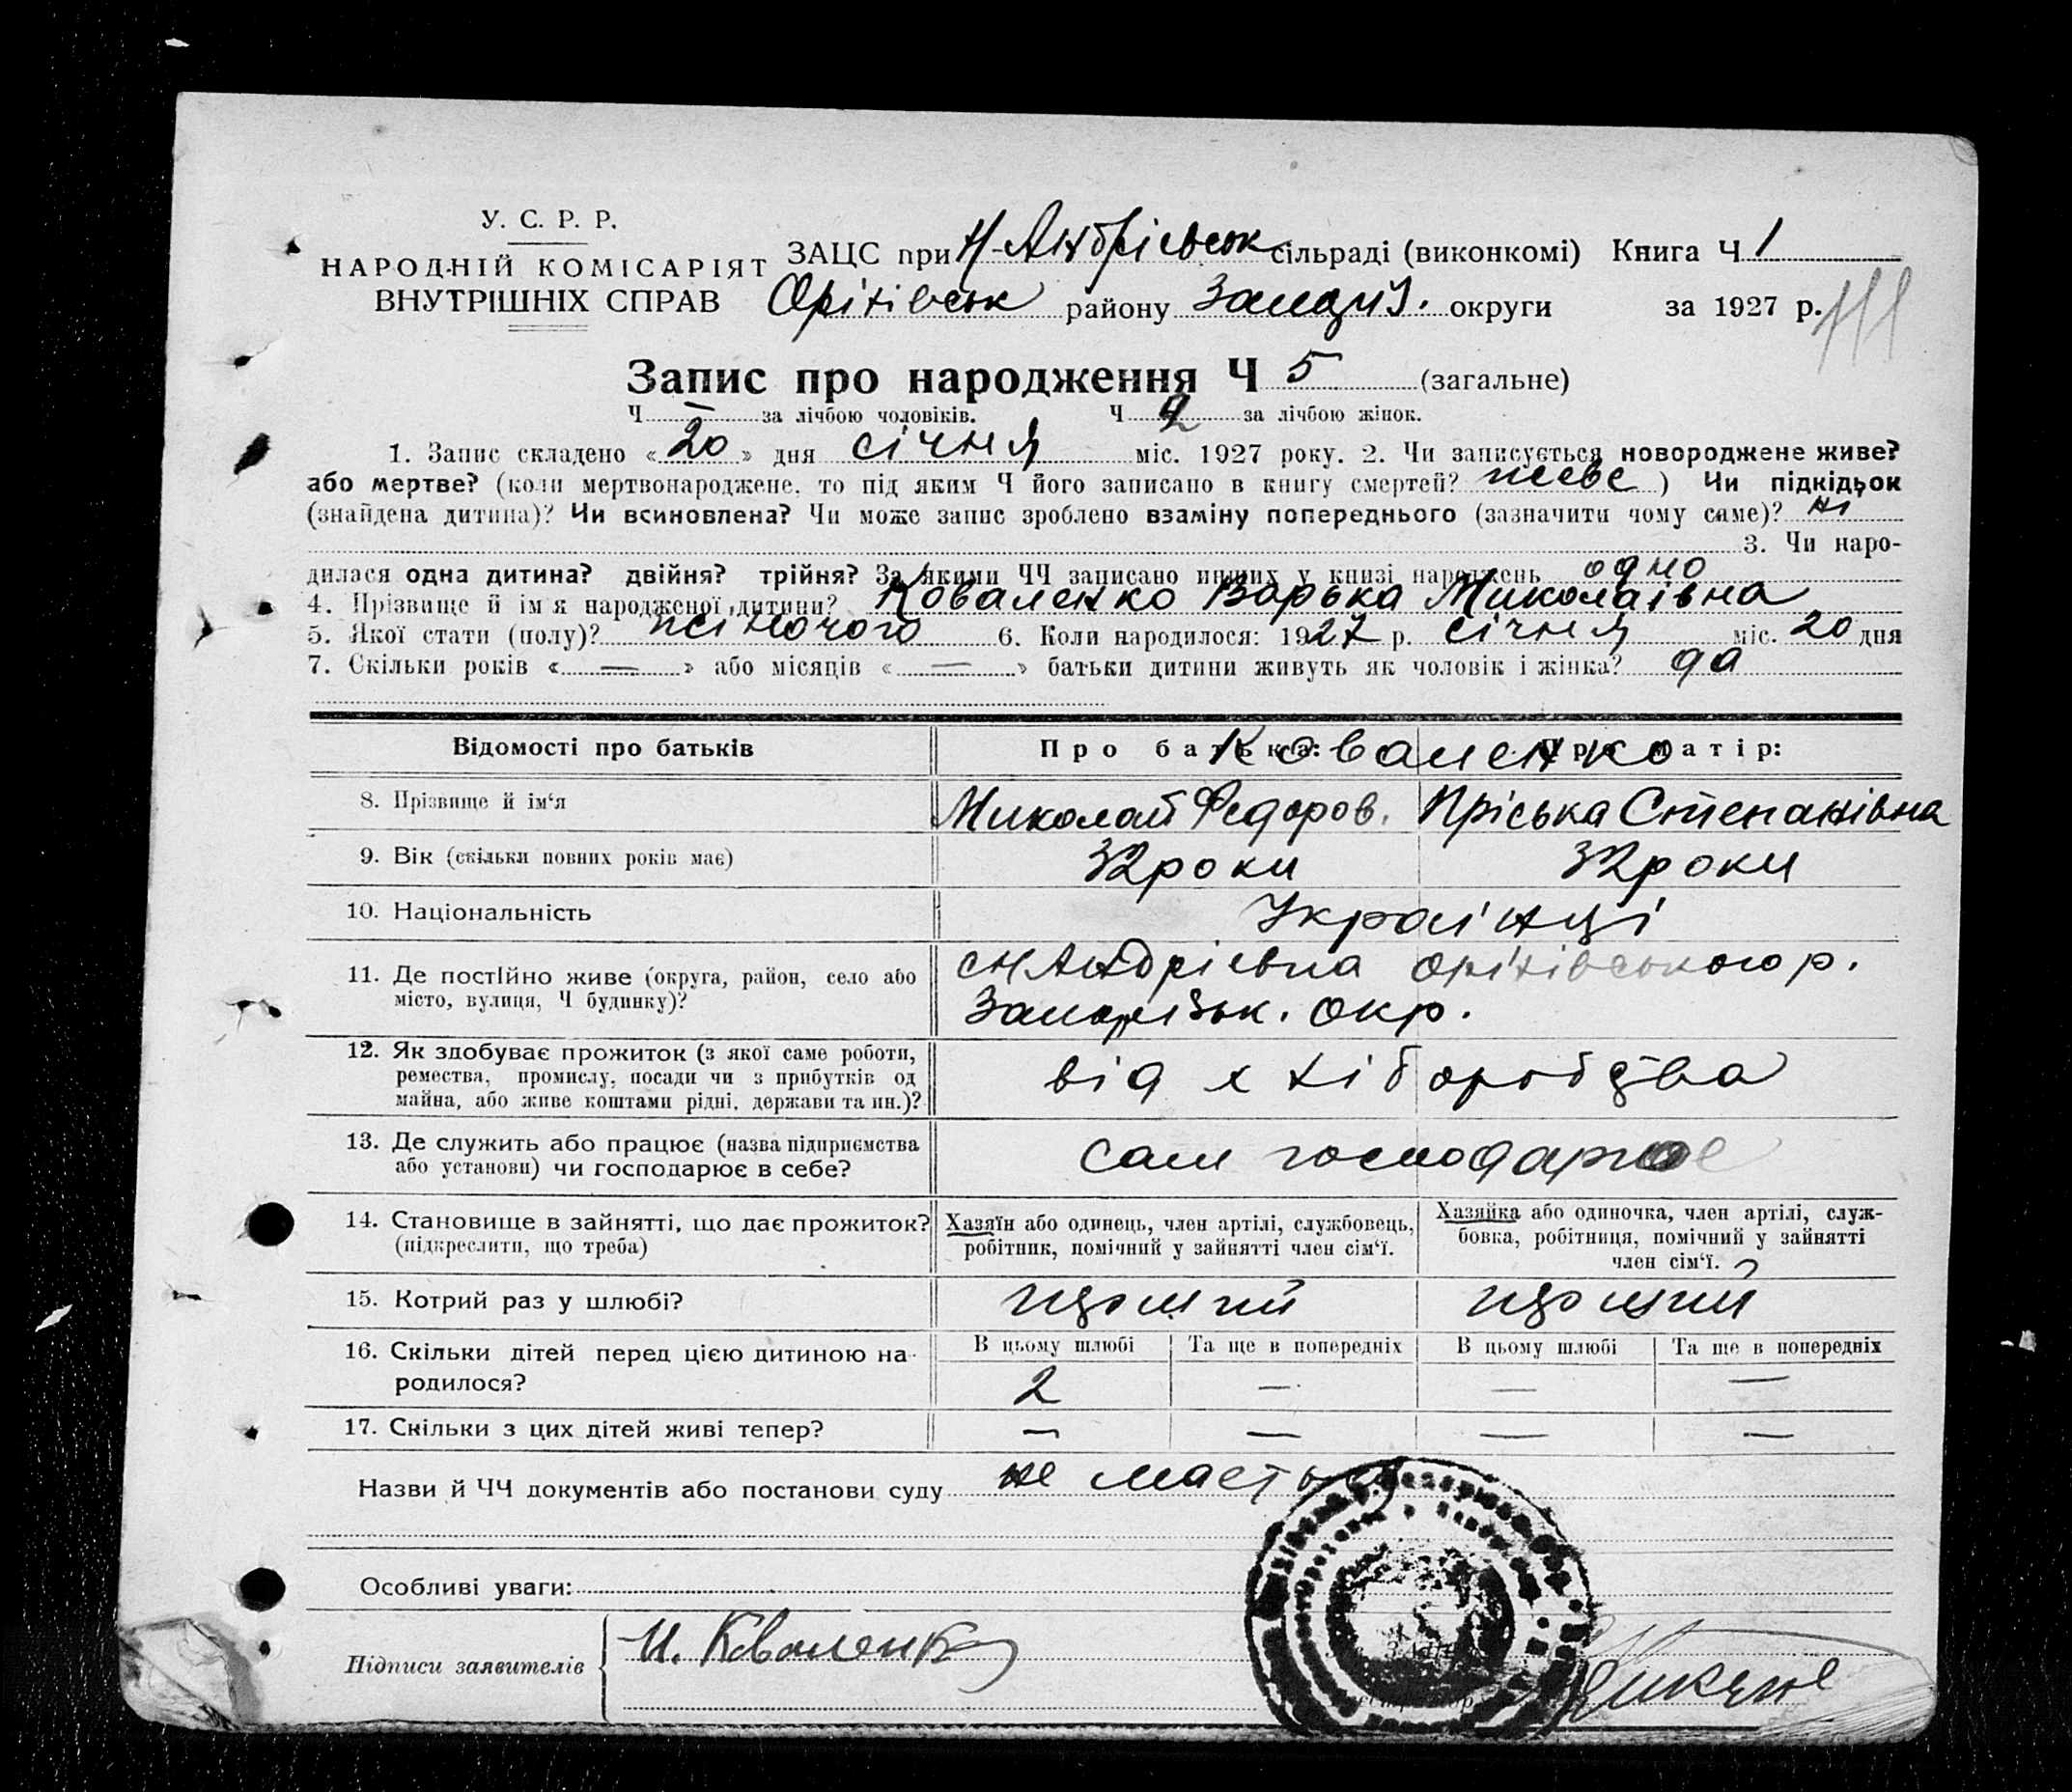 У. С. Р. Р.
НАРОДНІЙ КОМІСАРІЯТ
ВНУТРІШНІХ СПРАВ
ЗАЦС при Н-Андрієвськ сільраді (виконкомі) Книга Ч 1
Оріхівськ району округи за 1927 р.
Запис про народження Ч 5 (загальне)
Ч — за лічбою чоловіків. Ч 2 за лічбою жінок.
1. Запис складено «20» дня січня міс. 1927 року. 2. Чи записується новороджене живе?
або мертве? (коли мертвонароджене, то під яким Ч його записано в книгу смертей? живе) Чи підкідьок
(знайдена дитина)? Чи всиновлена? Чи може запис зроблено взаміну попереднього (зазначити чому саме)? ні
3. Чи наро-
дилася одна дитина? двійня? трійня? За якими ЧЧ записано инших у книзі народжень одно
4. Прізвище й ім'я народженої дитини? Коваленко Варька Миколаівна
5. Якої стати (полу)? жіночого 6. Коли народилося: 1927 р. січня міс. 20 дня
7. Скільки років «=» або місяців «=» батьки дитини живуть як чоловік і жінка? да
Відомості про батьків Про батька: Про матір:
Коваленко
8. Прізвище й ім'я Миколай Федоров. Пріська Степанівна
9. Вік (скільки повних років має) 32 роки 32 роки
10. Національність Украі'нці
11. Де постійно живе (округа, район, село або
місто, вулиця, Ч будинку)?
с Н Андрієвна Оріхівського р.
Запорізьк. окр.
12. Як здобуває прожиток (з якої саме роботи,
ремества, промислу, посади чи з прибутків од
майна, або живе коштами рідні, держави та ин.)?
від хліборобства
13. Де служить або працює (назва підприємства
або установи) чи господарює в себе?
сам господарює
14. Становище в зайнятті, що дає прожиток?
(підкреслити, що треба)
Хазяїн або одинець, член артілі, службовець,
робітник, помічний у зайнятті член сім'ї.
Хазяйка або одиночка, член артілі, служ-
бовка, робітниця, помічний у зайнятті
член сім'ї.
15. Котрий раз у шлюбі?
16. Скільки дітей перед цією дитиною на-
родилося?
В цьому шлюбі Та ще в попередніх В цьому шлюбі Та ще в попередніх
2 — — —
17. Скільки з цих дітей живі тепер? — — — —
Назви й ЧЧ документів або постанови суду не мається
Особливі уваги:
Підписи заявителів Коваленко